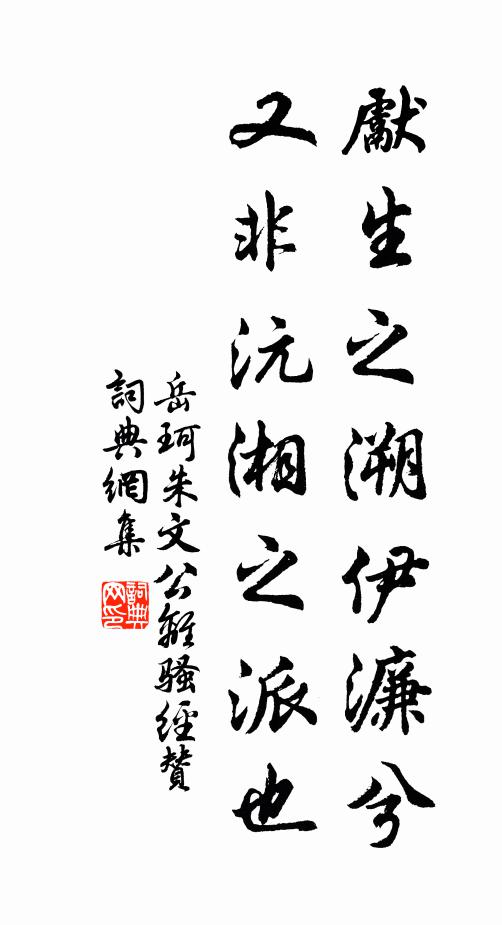 獻生之溯伊濂兮
又非沅湘之派也
岳珂朱文公離騷經贊
詞典網集
詞典
网印